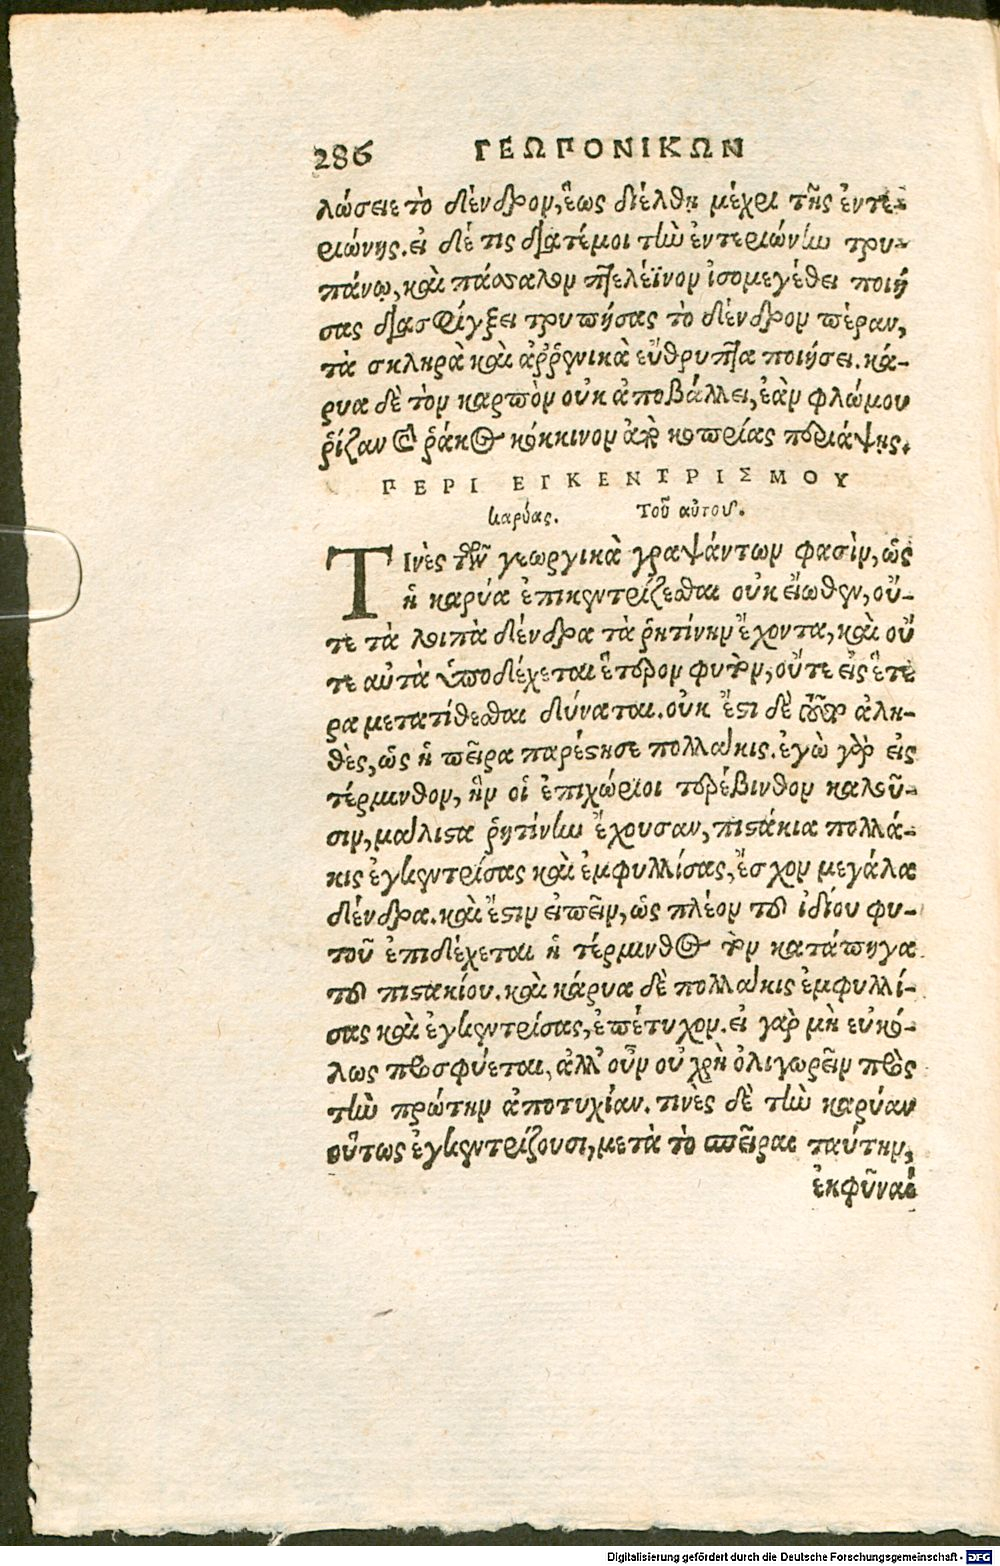 286 ΓΕΩΠΟΝΙΚΩΝ
λώσειε τὸ δένδρον, ἕως διέλθῃ μέχρι τῆς ἐντε-
ριώνης. εἰ δέ τις διατέμοι τὴν ἐντεριώνην τρυ-
πάνῳ, καὶ πάσσαλον πτελέϊνον ἰσομεγέθει ποιή
σας διασφίγξει τρυπήσας τὸ δένδρον πέραν,
τὰ σκληρὰ καὶ ἀῤῥενικὰ εὔθρυπτα ποιήσει. κά-
ρυα δὲ τὸν καρπὸν οὐκ ἀποβάλλει, ἐὰν φλώμου
ῥίζαν καὶ ῥάκος κόκκινον ἀπὸ κοπρίας περιάψῃς.
ΠΕΡΙ ΕΓΚΕΝΤΡΙΣΜΟΥ
καρύας. Τοῦ αὐτοῦ.
Τινὲς τῶν γεωργικὰ γραψάντων φασὶν, ὡς
ἡ καρύα ἐπικεντρίζεσθαι οὐκ εἴωθεν, οὔ-
τε τὰ λοιπὰ δένδρα τὰ ῥητίνην ἔχοντα, καὶ οὔ
τε αὐτὰ ὑποδέχεται ἕτερον φυτὸν, οὔτε εἰς ἕτε
ρα μετατίθεσθαι δύναται. οὐκ ἔστι δὲ τοῦτο ἀλη-
θὲς, ὡς ἡ πεῖρα παρέστησε πολλάκις. ἐγὼ γὰρ εἰς
τέρμινθον, ἣν οἱ ἐπιχώριοι τερέβινθον καλοῦ-
σιν, μάλιστα ῥητίνην ἔχουσαν, πιστάκια πολλά-
κις ἐγκεντρίσας καὶ ἐμφυλλίσας, ἔσχον μεγάλα
δένδρα. καὶ ἔστιν εἰπεῖν, ὡς πλέον τοῦ ἰδίου φυ-
τοῦ ἐπιδέχεται ἡ τέρμινθος τὸν κατάπηγα
τοῦ πιστακίου. καὶ κάρυα δὲ πολλάκις ἐμφυλλί-
σας καὶ ἐγκεντρίσας, ἐπέτυχον. εἰ γὰρ μὴ εὐκό-
λως προσφύεται, ἀλλ' οὖν οὐ χρὴ ὀλιγωρεῖν πρὸς
τὴν πρώτην ἀποτυχίαν. τινὲς δὲ τὴν καρύαν
οὕτως ἐγκεντρίζουσι, μετὰ τὸ σπεῖραι ταύτην,
ἐκφῦναι
Digitalisierung gefördert durch die Deutsche Forschungsgemeinschaft - DFG